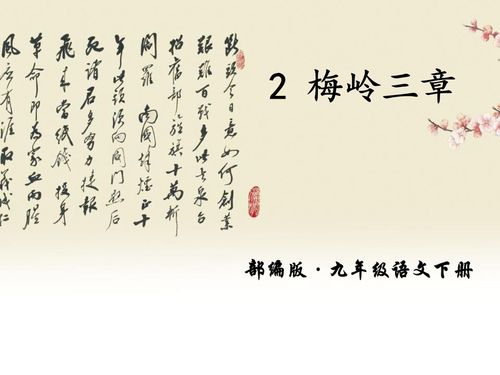 断头今日意如何创业
艰难百战多此去泉台
招旧部旌旗十万斩
阎罗 南国烽烟正十
年此头须向国门悬后
死诸君多努力捷报
飞来当纸钱 投身
革命即为家血雨腥
风应有涯取义成仁
2 梅岭三章
部编版·九年级语文下册